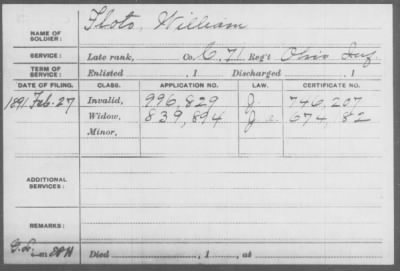 NAME OF SOLDIER: Floto, William
SERVICE: Late rank, Co. C. 71 Reg't Ohio Inf
TERM OF SERVICE: Enlisted , 1 Discharged , 1
DATE OF FILING. CLASS. APPLICATION NO. LAW. CERTIFICATE NO.
1891 Feb. 27 Invalid, 996,829 J. 746,207
Widow, 839,894
Minor,
ADDITIONAL SERVICES:
REMARKS:
Died , 1 , at